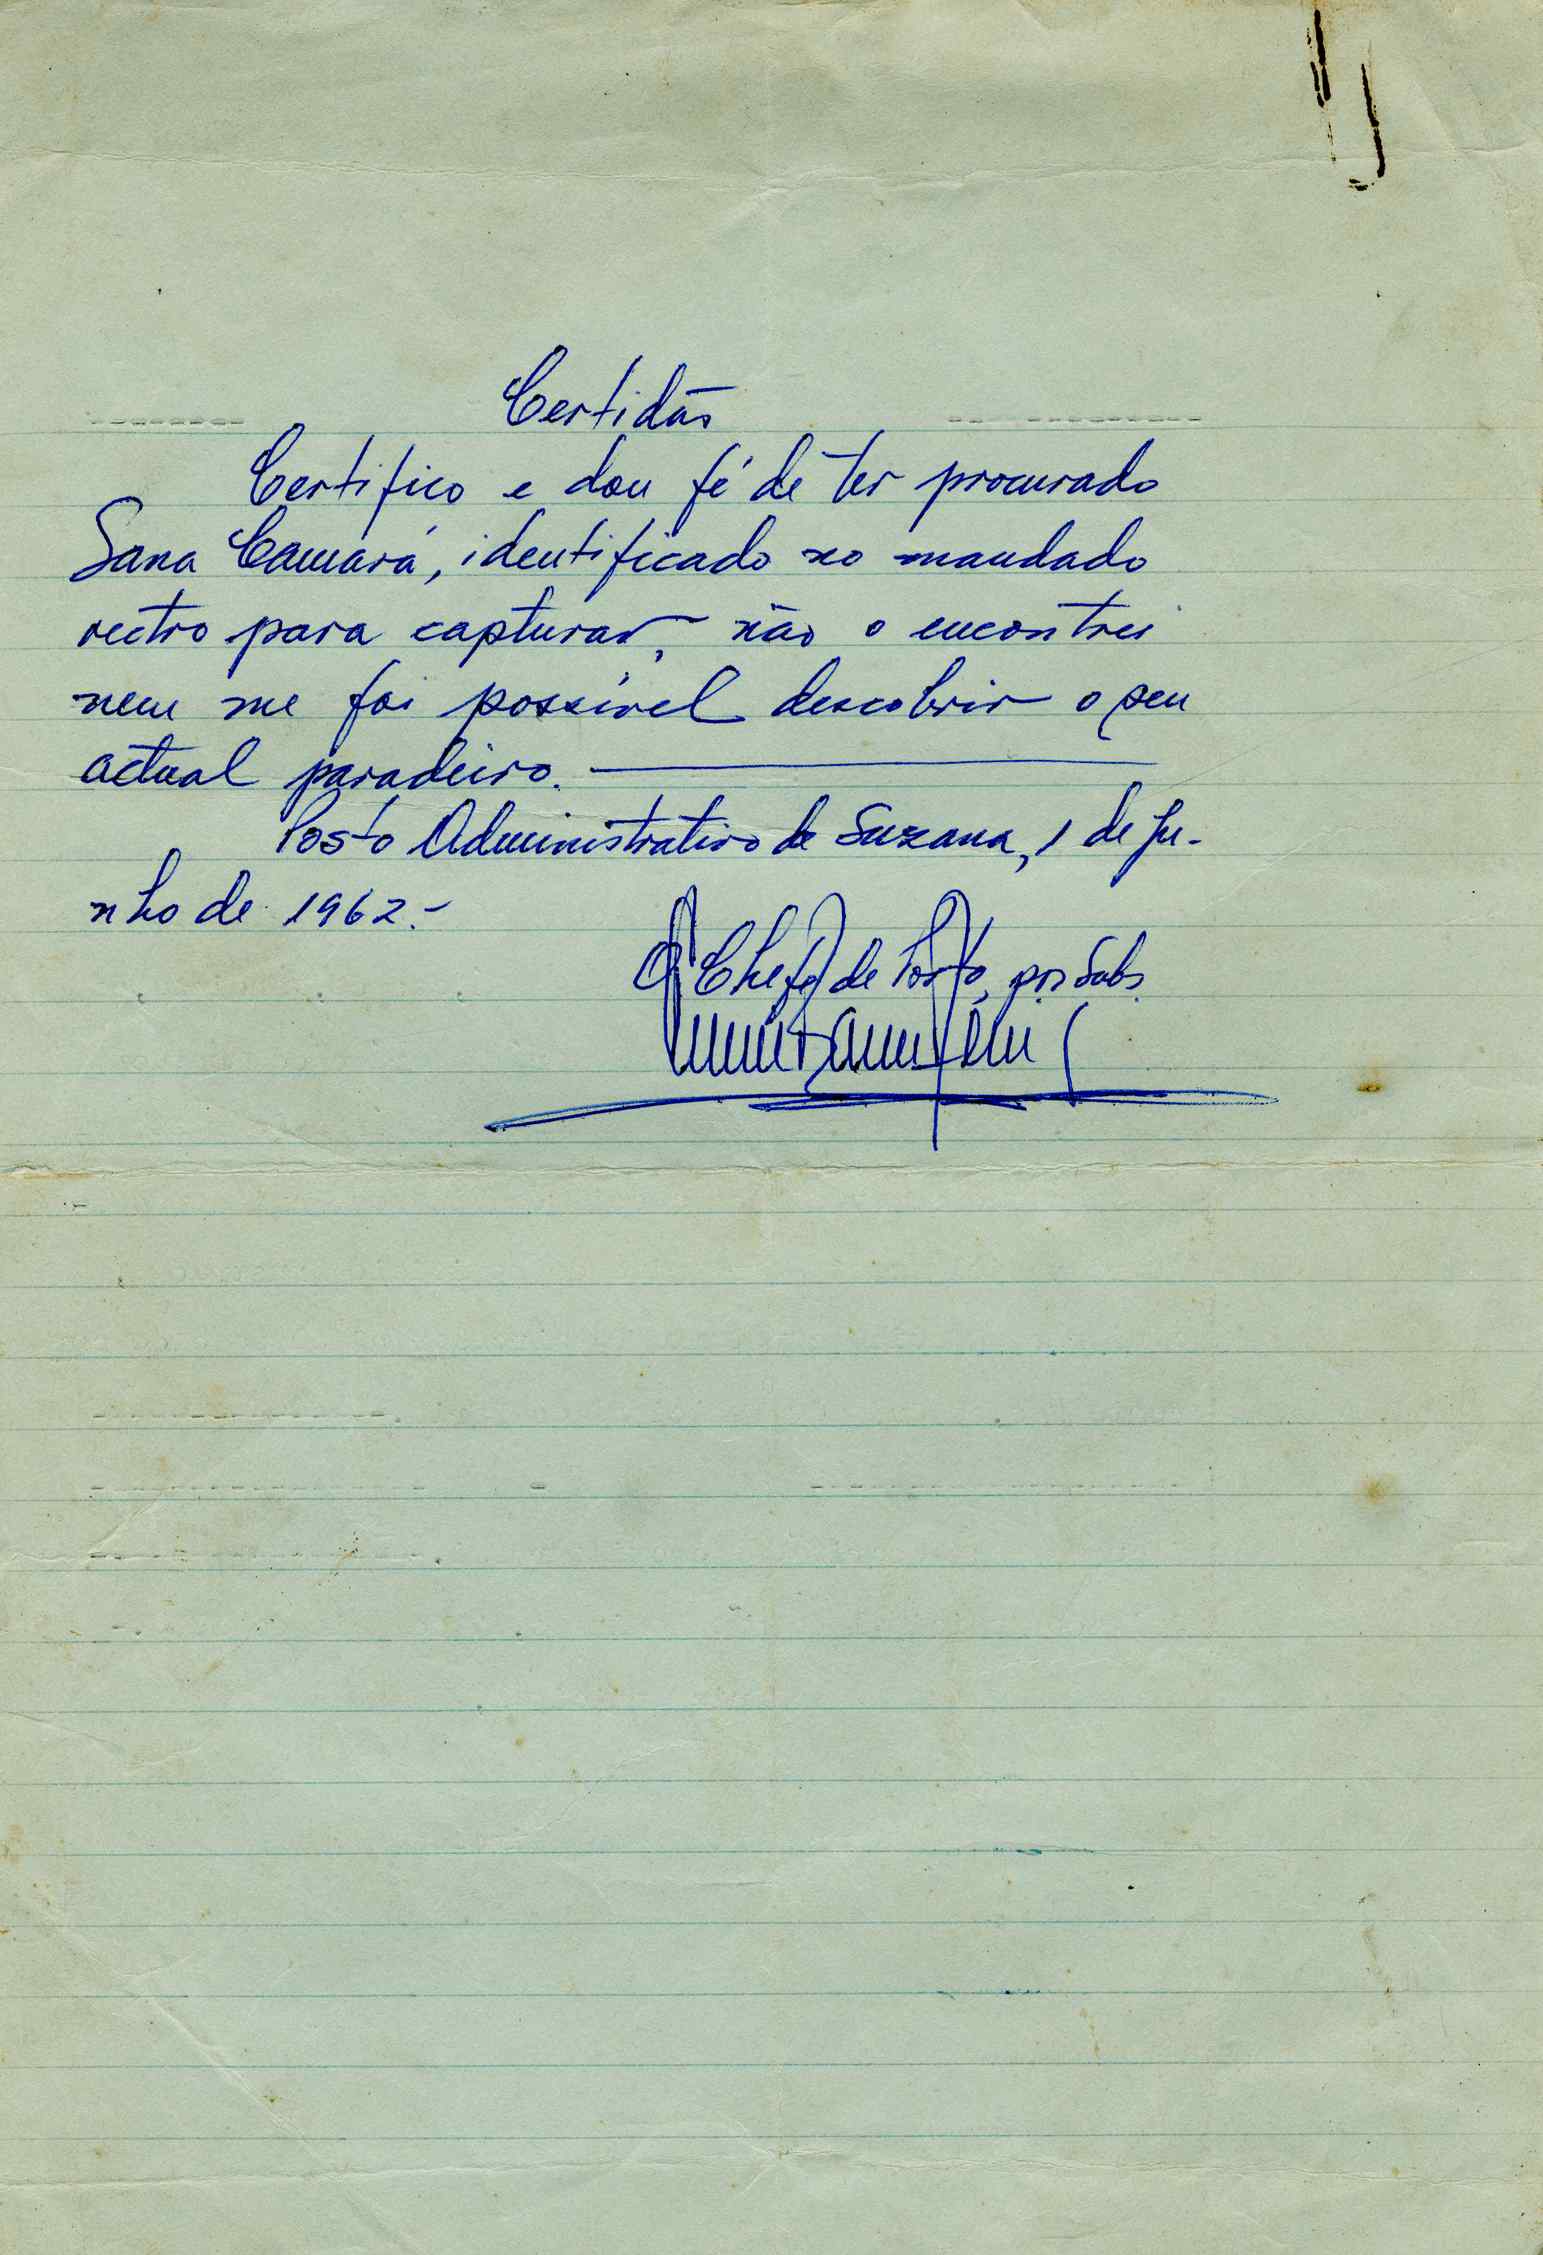 Certidão
Certifico e dou fé de ter procurado
Sana Camará, identificado no mandado
rectro para capturar, não o encontrei
nem me foi possível descobrir o seu
actual paradeiro.
Posto Administrativo de Suzana, 1 de Ju-
nho de 1962.-
O Chefe de Posto, por Subs.